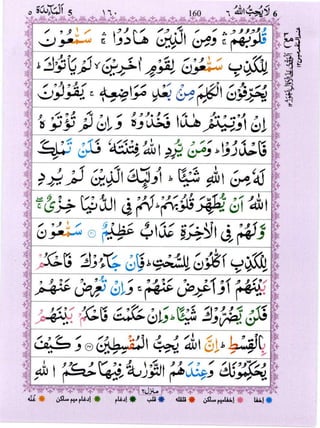 المآئدة ٥ ١٦٠ 160 لا يحب الله ٦
قُلُوْبُهُمْ ۛۚ وَمِنَ الَّذِيْنَ هَادُوْا ۛۚ سَمّٰعُوْنَ
لِلْكَذِبِ سَمّٰعُوْنَ لِقَوْمٍ اٰخَرِيْنَ ۙ لَمْ يَاْتُوْكَ ؕ
يُحَرِّفُوْنَ الْكَلِمَ مِنْۢ بَعْدِ مَوَاضِعِهٖ ۚ يَقُوْلُوْنَ
اِنْ اُوْتِيْتُمْ هٰذَا فَخُذُوْهُ وَاِنْ لَّمْ تُؤْتَوْهُ
فَاحْذَرُوْا ؕ وَمَنْ يُّرِدِ اللّٰهُ فِتْنَتَهٗ فَلَنْ تَمْلِكَ
لَهٗ مِنَ اللّٰهِ شَيْئًا ؕ اُولٰٓئِكَ الَّذِيْنَ لَمْ يُرِدِ
اللّٰهُ اَنْ يُّطَهِّرَ قُلُوْبَهُمْ ؕ لَهُمْ فِى الدُّنْيَا خِزْىٌ ۖۚ
وَّلَهُمْ فِى الْاٰخِرَةِ عَذَابٌ عَظِيْمٌ ۝ سَمّٰعُوْنَ
لِلْكَذِبِ اَكّٰلُوْنَ لِلسُّحْتِ ؕ فَاِنْ جَآءُوْكَ فَاحْكُمْ
بَيْنَهُمْ اَوْ اَعْرِضْ عَنْهُمْ ۚ وَاِنْ تُعْرِضْ عَنْهُمْ
فَلَنْ يَّضُرُّوْكَ شَيْئًا ؕ وَاِنْ حَكَمْتَ فَاحْكُمْ بَيْنَهُمْ
بِالْقِسْطِ ؕ اِنَّ اللّٰهَ يُحِبُّ الْمُقْسِطِيْنَ ۝ وَكَيْفَ
يُحَكِّمُوْنَكَ وَعِنْدَهُمُ التَّوْرٰىةُ فِيْهَا حُكْمُ اللّٰهِ
منزل ٢
اخفا اخفا ميم ساكن قلقله قلب ادغام ادغام ميم ساكن غنّه